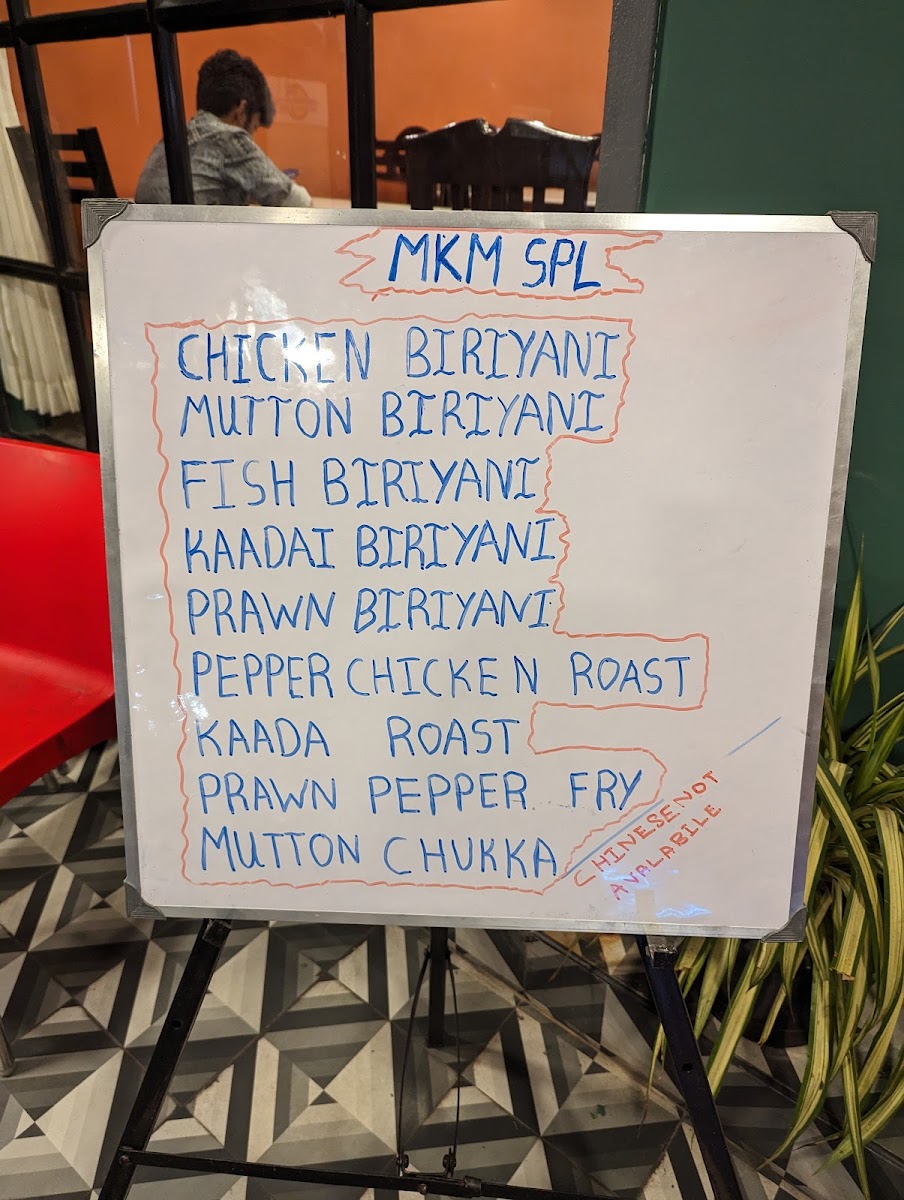 MKM SPL
CHICKEN BIRIYANI
MUTTON BIRIYANI
FISH BIRIYANI
KAADAI BIRIYANI
PRAWN BIRIYANI
PEPPER CHICKEN ROAST
KAADA ROAST
PRAWN PEPPER FRY
MUTTON CHUKKA
CHINESE NOT
AVALABILE